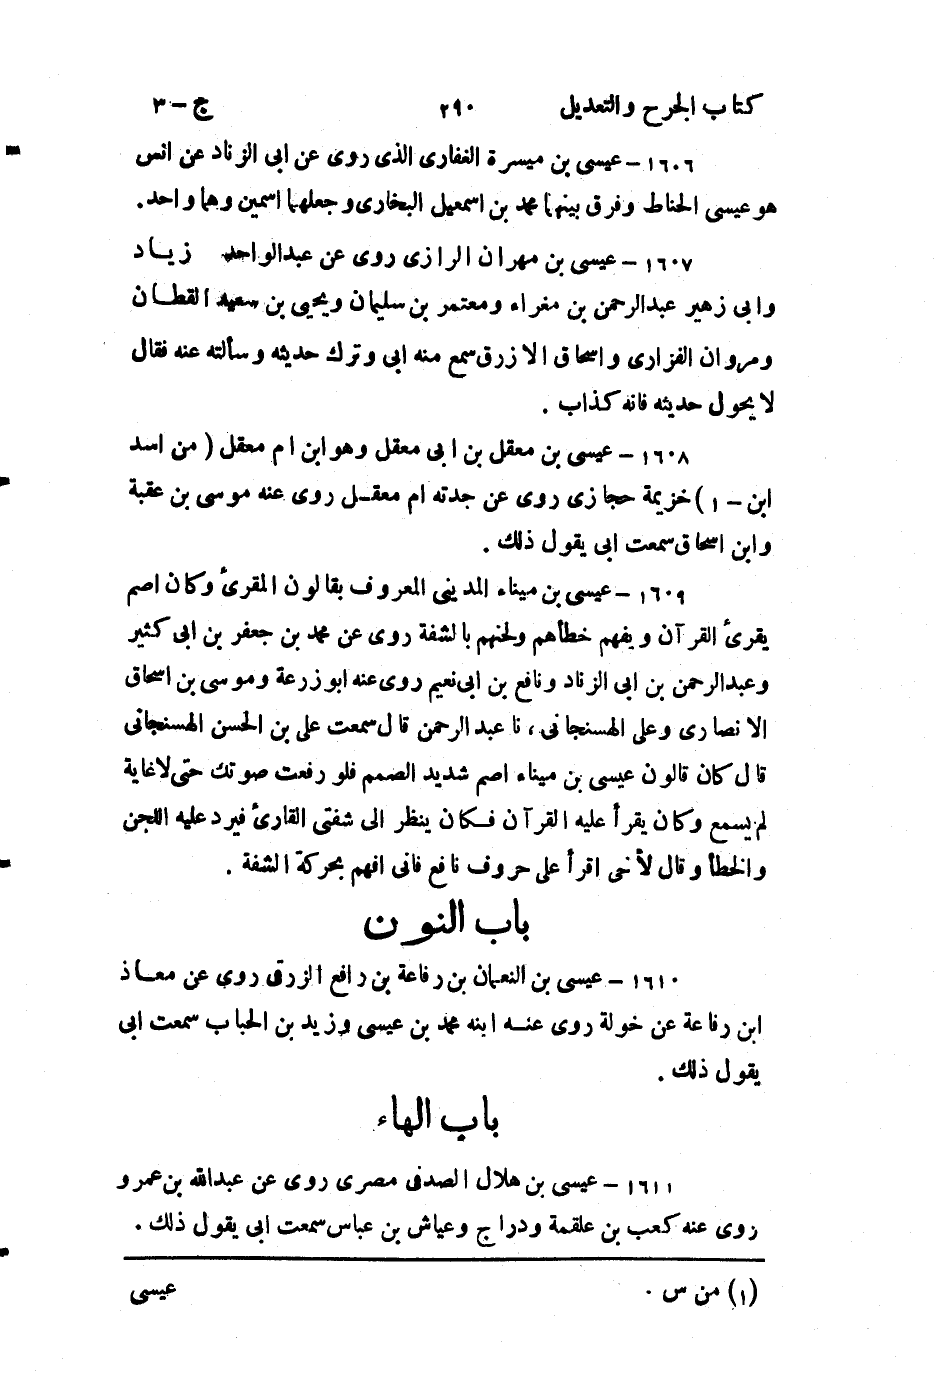 كتاب الجرح والتعديل ٢٩٠ ج - ٣
١٦٠٦ - عيسى بن ميسرة الغفارى الذى روى عن ابى الزناد عن انس
هو عيسى الحناط وفرق بينهما محمد بن اسمعيل البخارى وجعلهما اسمين وهما واحد .
١٦٠٧ - عيسى بن مهران الرازى روى عن عبدالواحد زياد
وابى زهير عبدالرحمن بن مغراء ومعتمر بن سليمان ويحيى بن سعيد القطان
ومروان الفزارى واسحاق الازرق سمع منه ابى وترك حديثه وسألته عنه فقال
لا يحول حديثه فانه كذاب .
١٦٠٨ - عيسى بن معقل بن ابى معقل وهو ابن ام معقل ( من اسد
ابن - ١ ) خزيمة حجازى روى عن جدته ام معقل روى عنه موسى بن عقبة
وابن اسحاق سمعت ابى يقول ذلك .
١٦٠٩ - عيسى بن ميناء المدينى المعروف بقالون المقرئ وكان اصم
يقرئ القرآن ويفهم خطأهم ولحنهم بالشفة روى عن محمد بن جعفر بن ابى كثير
وعبدالرحمن بن ابى الزناد ونافع بن ابى نعيم روى عنه ابو زرعة وموسى بن اسحاق
الانصارى وعلى الهسنجانى ، نا عبد الرحمن قال سمعت على بن الحسن الهسنجانى
قال كان قالون عيسى بن ميناء اصم شديد الصمم فلو رفعت صوتك حتى لاغاية
لم يسمع وكان يقرأ عليه القرآن فكان ينظر الى شفتى القارئ فيرد عليه اللحن
والخطأ وقال لأخى اقرأ على حروف نافع فانى افهم بحركة الشفة .
باب النون
١٦١٠ - عيسى بن النعمان بن رفاعة بن رافع الزرقى روى عن معاذ
ابن رفاعة عن خولة روى عنه ابنه محمد بن عيسى وزيد بن الحباب سمعت ابى
يقول ذلك .
باب الهاء
١٦١١ - عيسى بن هلال الصدفى مصرى روى عن عبدالله بن عمرو
روى عنه كعب بن علقمة ودراج وعياش بن عباس سمعت ابى يقول ذلك .
(١) من س . عيسى